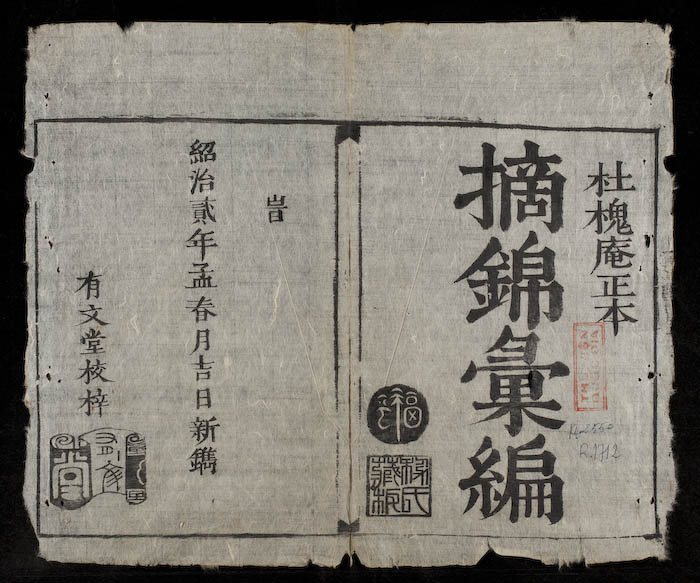 杜槐庵正本
摘錦彙編
氏藏板
R.1712
旹
紹治貳年孟春月吉日新鐫
有文堂校梓